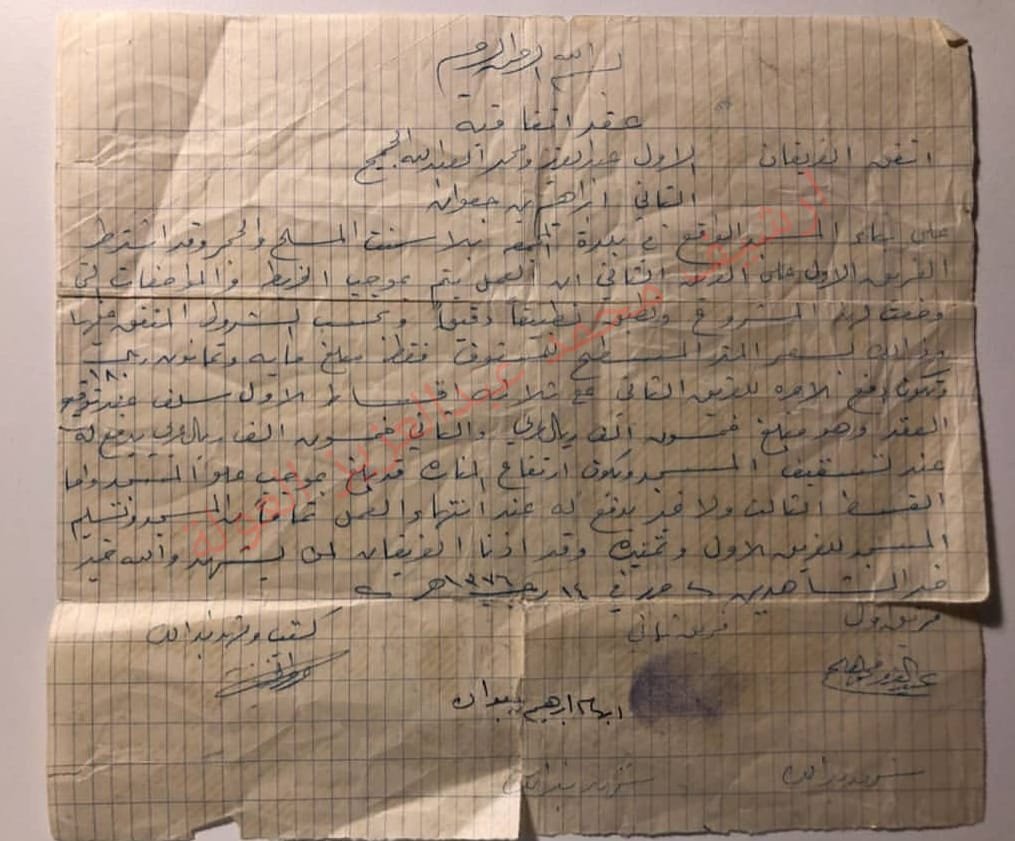 بسم الله الرحمن الرحيم
عقد اتفاقية
اتفق الفريقان الاول عبدالعزيز ومحمد العبدالله الجميح
الثاني ابراهيم بن
على بناء المسجد الواقع في بلدة بالاسمنت المسلح والحجر وقد اشترط
الفريق الاول على الفريق الثاني ان العمل يتم بموجب الخريط والمواصفات التي
وضعت لهذا المشروع تطبيقا دقيقا وبحسب الشروط المتفق عليها
وذلك بسعر المتر المسطح للمسقوف فقط مبلغ مايه وثمانون ريال
١٨٠
وتكون دفع الاجره للفريق الثاني على ثلاثة اقساط الاول سلف عند توقيع
العقد وهو مبلغ خمسون الف ريال عربي والثاني خمسون الف ريال عربي يدفع له
عند تسقيف المسجد ويكون ارتفاع المناره قد بلغ بموجب علو المسجد واما
القسط الثالث والاخير يدفع له عند انتهاء العمل تماما من المسجد وتسليم
المسجد للفريق الاول وقد اذنا الفريقان لمن يشهد والله خير
الشاهدين حرر في ١٤ رجب ١٣٧٦هـ
فريق اول
فريق ثاني
كتب وشهد بذالك
ابهام ابرهيم
شهد بذالك
شهد بذالك
ارشيف محمد عبدالعزيز